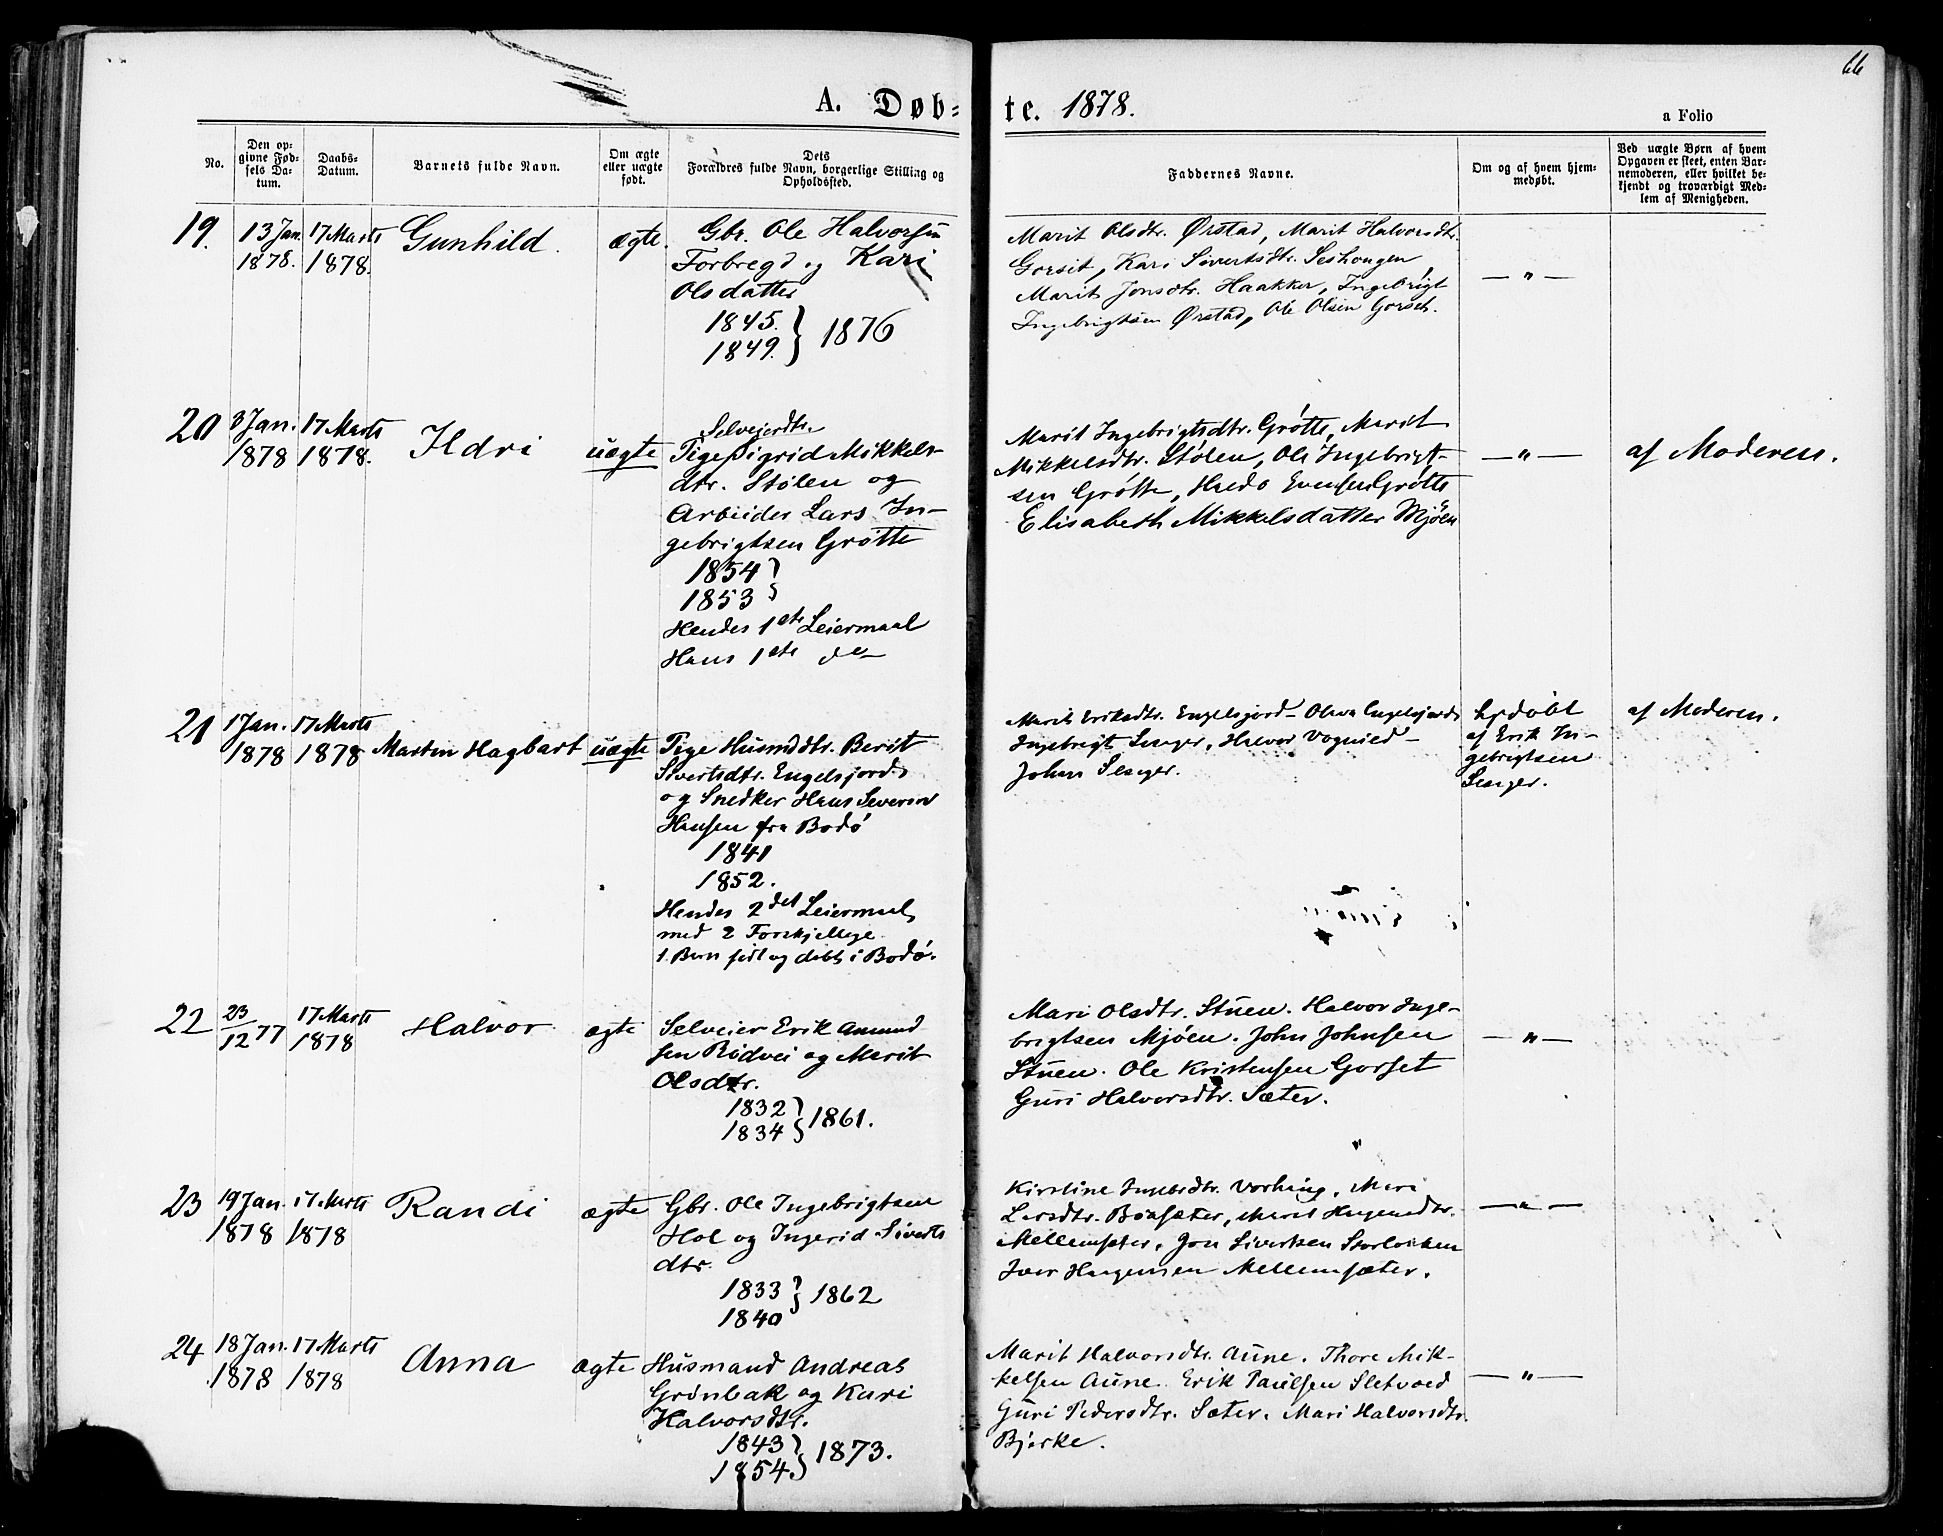 66
A. Døb=
te. 1878.
a Folio
No.
Den op=
givne Fød=
sels Da=
tum.
Daabs=
Datum.
Barnets fulde Navn.
Om ægte
eller uægte
født.
Dets
Forældres fulde Navn, borgerlige Stilling og
Opholdssted.
Faddernes Navne.
Om og af hvem hjem=
medøbt.
Ved uægte Børn af hvem
Opgaven er skeet, enten Bar=
nemoderen, eller hvilket be=
kjendt og troværdigt Med=
lem af Menigheden.
19.
13 Jan.
1878.
17 Marts
1878.
Gunhild.
ægte.
Gbr. Ole Halvorsen
Forbregd og Kari
Olsdatter
1845.
1849. } 1876
Marit Olsdtr. Ørstad, Marit Halvorsdtr.
Gorsit, Kari Sivertsdtr.
Marit Jonsdtr. Haakker, Ingebrigt
Ingebrigtsen Ørstad, Ole Olsen Gorset.
— " —
20
3 Jan.
1878
17 Marts
1878.
Ildri
uægte
Selveierdtr.
Pige Sigrid Mikkels-
dtr. Stølen og
Arbeider Lars In-
gebrigtsen Grøtte
1854 }
1853
Hendes 1ste Leiermaal
Hans 1ste do
Marit Ingebrigtsdtr. Grøtte, Marit
Mikkelsdtr. Stølen, Ole Ingebrigt-
sen Grøtte, Haldo Evensen Grøtte
Elisabeth Mikkelsdatter Mjøen
— " —
af Moderen.
21
1 Jan.
1878
17 Marts
1878
Martin Hagbart
uægte
Pige Husmdtr. Berit
Sivertsdtr. Engelsjord
og Snedker Hans Severin
Hansen fra Bodø
1841
1852.
Hendes 2det Leiermaal
med 2 Forskjellige.
1. Barn født og døbt i Bodø.
Marit Eriksdtr. Engelsjord - Olava Engelsjord
Ingebrigt Senger, Halvor Vognild -
John Senger.
hjdøbt
af Erik In-
gebrigtsen
Senger.
af Moderen.
22
23
12 77
17 Marts
1878
Halvor
ægte
Selveier Erik Amund
sen Rødvei og Marit
Olsdtr.
1832
1834 } 1861.
Mari Olsdtr. Stuen. Halvor Inge-
brigtsen Mjøen. John Johnsen
Stuen. Ole Kristensen Gorset
Guri Halvorsdtr. Sæter.
— " —
23
19 Jan.
1878
17 Marts
1878
Randi
ægte
Gbr. Ole Ingebrigtsen
Hol og Ingerid Siverts
dtr.
1833
1840 } 1862
Kirstine Ingebrdtr. Mari
Larsdtr. Marit Haagensdtr.
Mellemsæter. Jon Sivertsen
Iver Haagensen Mellemsæter.
— " —
24
18 Jan.
1878
17 Marts
1878
Anna
ægte
Husmand Andreas
Grønbak og Kari
Halvorsdtr.
1843
1854. } 1873.
Marit Halvorsdtr. Aune. Thore Mik-
kelsen Aune. Erik Paulsen Sletvold
Guri Pedersdtr. Sæter. Mari Halvorsdtr.
Bjerke.
— " —